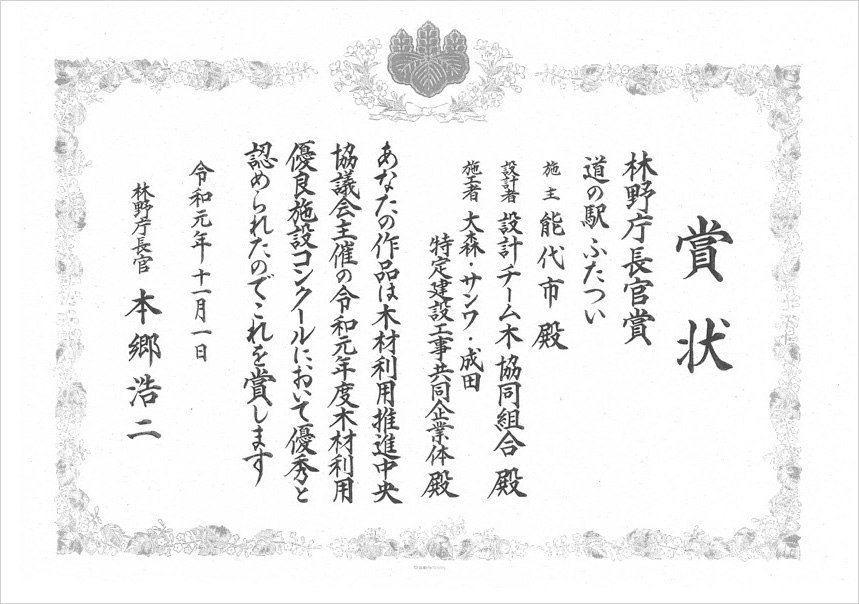 賞状
林野庁長官賞
道の駅ふたつい
施主 能代市 殿
設計者 設計チーム木 協同組合 殿
施工者 大森・サンワ・成田
特定建設工事共同企業体 殿
あなたの作品は木材利用推進中央
協議会主催の令和元年度木材利用
優良施設コンクールにおいて優秀と
認められたのでこれを賞します
令和元年十一月一日
林野庁長官 本郷浩二